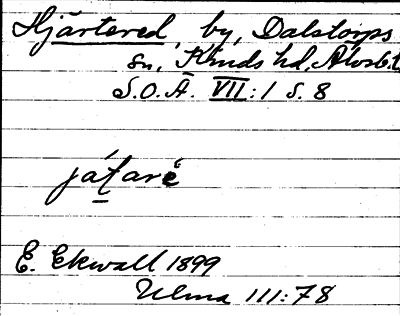 Hjärtered, by, Dalstorps
sn, Kinds hd, Älvsb.l
S.O.Ä. VII:1 s. 8
já̱tarè
E. Ekwall 1899
Ulma 111:78